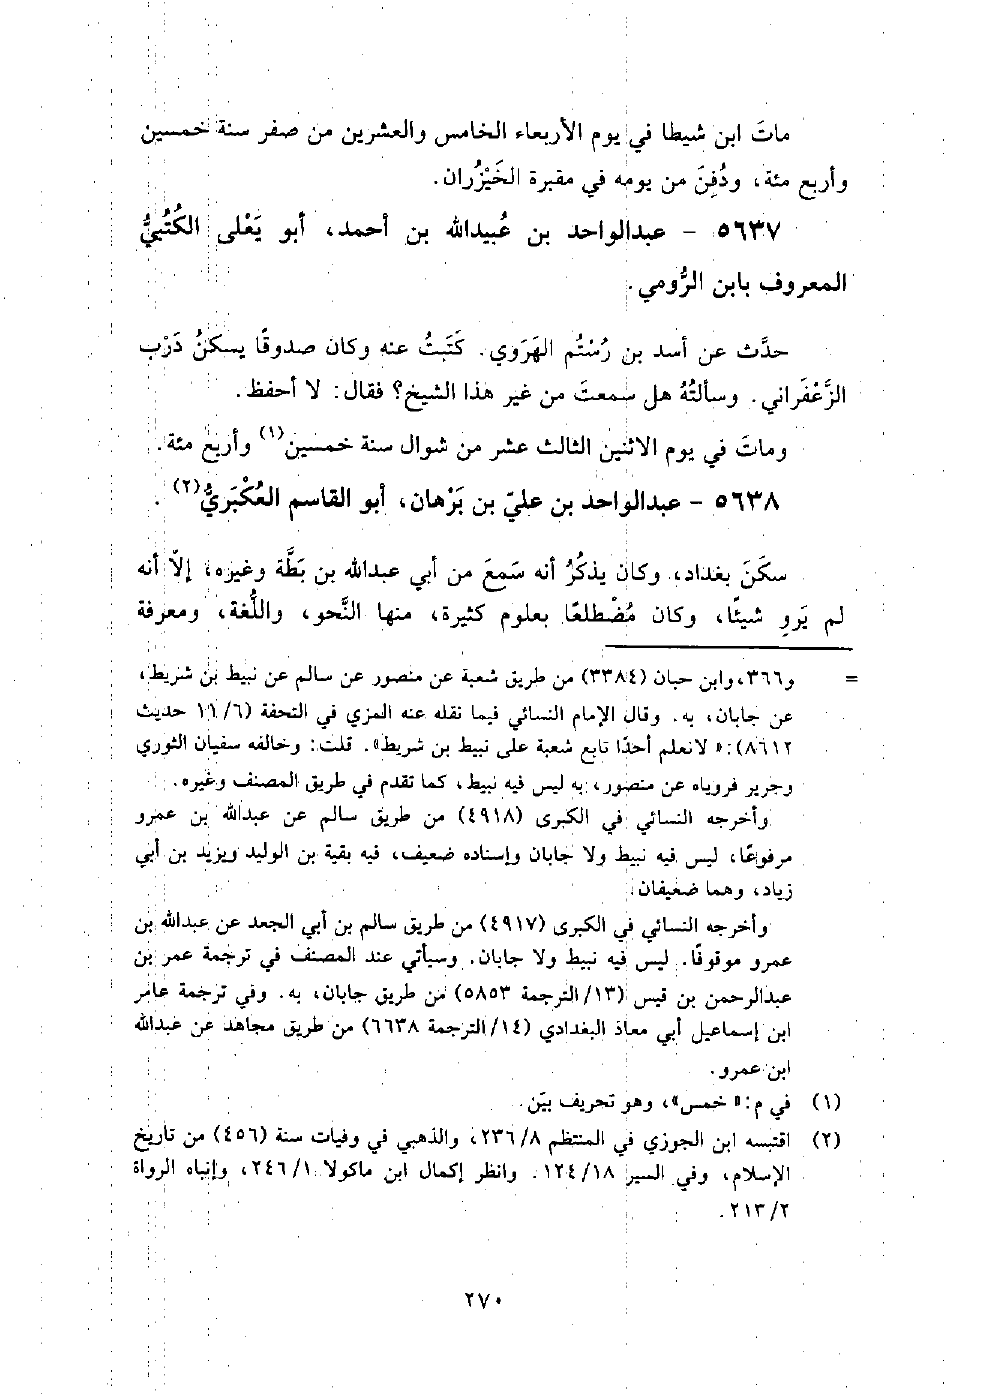 ماتَ ابن شيطا في يوم الأربعاء الخامس والعشرين من صفر سنة خمسين
وأربع مئة، ودُفِنَ من يومه في مقبرة الخَيْزُران.
٥٦٣٧ - عبدالواحد بن عُبيدالله بن أحمد، أبو يَعْلى الكُتُبيُّ
المعروف بابن الرُّومي.
حدَّث عن أسد بن رُسْتُم الهَرَوي. كَتَبتُ عنه وكان صدوقًا يسكنُ دَرْب
الزَّعْفَراني. وسألتُهُ هل سمعتَ من غير هذا الشيخ؟ فقال: لا أحفظ.
وماتَ في يوم الاثنين الثالث عشر من شوال سنة خمسين(١) وأربع مئة.
٥٦٣٨ - عبدالواحد بن عليّ بن بَرْهان، أبو القاسم العُكْبَريُّ(٢).
سكَنَ بغداد، وكان يذكُرُ أنه سَمِعَ من أبي عبدالله بن بَطَّة وغيره، إلّا أنه
لم يَروِ شيئًا، وكان مُضْطلعًا بعلوم كثيرة، منها النَّحو، واللُّغة، ومعرفة
= و٣٦٦، وابن حبان (٣٣٨٤) من طريق شعبة عن منصور عن سالم عن نبيط بن شريط،
عن جابان، به. وقال الإمام النسائي فيما نقله عنه المزي في التحفة (٦/ ١١ حديث
٨٦١٢): «لا نعلم أحدًا تابع شعبة على نبيط بن شريط». قلت: وخالفه سفيان الثوري
وجرير فروياه عن منصور، به ليس فيه نبيط، كما تقدم في طريق المصنف وغيره.
وأخرجه النسائي في الكبرى (٤٩١٨) من طريق سالم عن عبدالله بن عمرو
مرفوعًا، ليس فيه نبيط ولا جابان وإسناده ضعيف، فيه بقية بن الوليد ويزيد بن أبي
زياد، وهما ضعيفان.
وأخرجه النسائي في الكبرى (٤٩١٧) من طريق سالم بن أبي الجعد عن عبدالله بن
عمرو موقوفًا. ليس فيه نبيط ولا جابان. وسيأتي عند المصنف في ترجمة عمر بن
عبدالرحمن بن قيس (١٣/ الترجمة ٥٨٥٣) من طريق جابان، به. وفي ترجمة عامر
ابن إسماعيل أبي معاذ البغدادي (١٤/ الترجمة ٦٦٣٨) من طريق مجاهد عن عبدالله
ابن عمرو.
(١) في م: «خمس»، وهو تحريف بيّن.
(٢) اقتبسه ابن الجوزي في المنتظم ٨/ ٢٣٦، والذهبي في وفيات سنة (٤٥٦) من تاريخ
الإسلام، وفي السير ١٨/ ١٢٤. وانظر إكمال ابن ماكولا ١/ ٢٤٦، وإنباه الرواة
٢/ ٢١٣.
٢٧٠